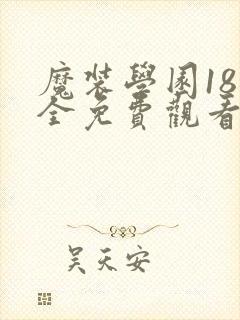 魔裝學園18
全免費觀看
吴天安